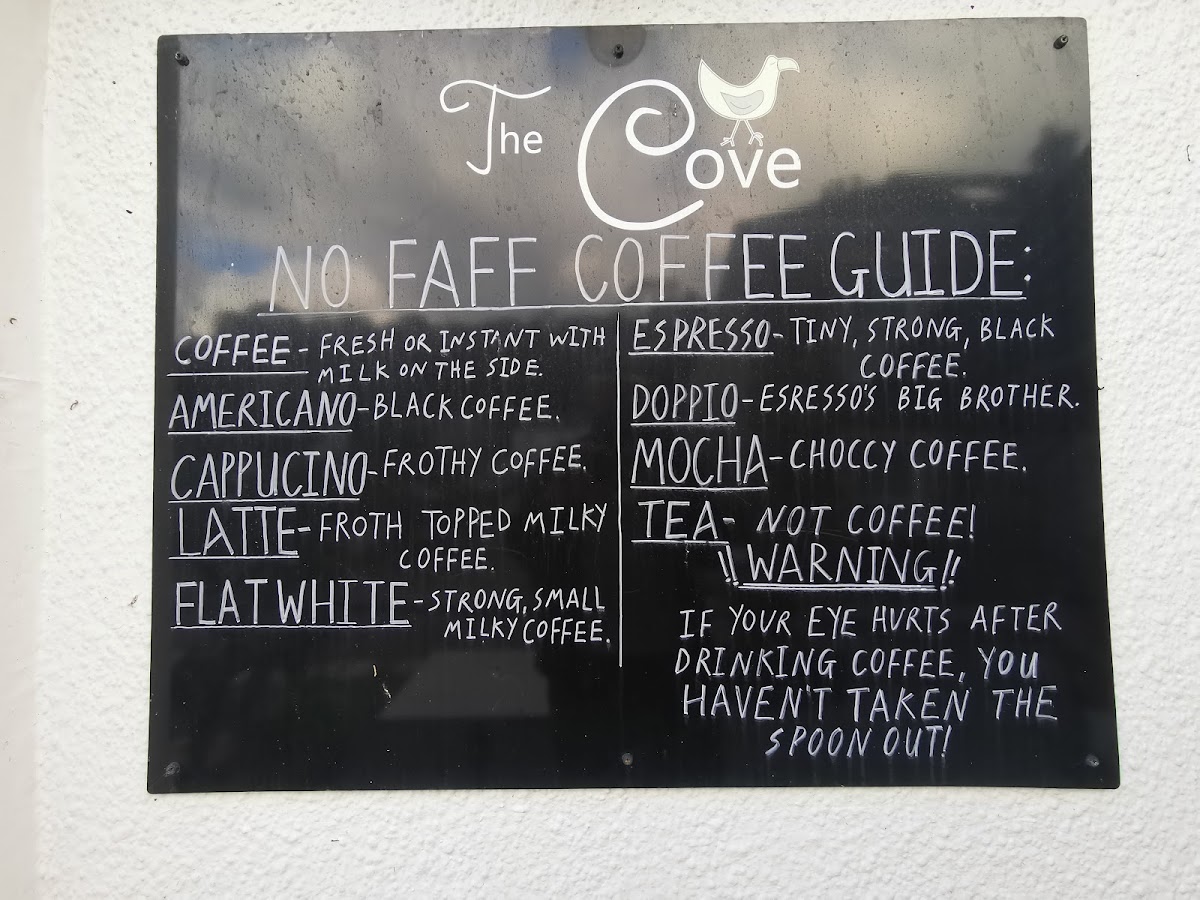 The Cove
NO FAFF COFFEE GUIDE:
COFFEE - FRESH OR INSTANT WITH
MILK ON THE SIDE.
AMERICANO - BLACK COFFEE.
CAPPUCINO - FROTHY COFFEE.
LATTE - FROTH TOPPED MILKY
COFFEE.
FLAT WHITE - STRONG, SMALL
MILKY COFFEE.
ESPRESSO - TINY, STRONG, BLACK
COFFEE.
DOPPIO - ESRESSO'S BIG BROTHER.
MOCHA - CHOCCY COFFEE.
TEA - NOT COFFEE!
!! WARNING!!
IF YOUR EYE HURTS AFTER
DRINKING COFFEE, YOU
HAVEN'T TAKEN THE
SPOON OUT!